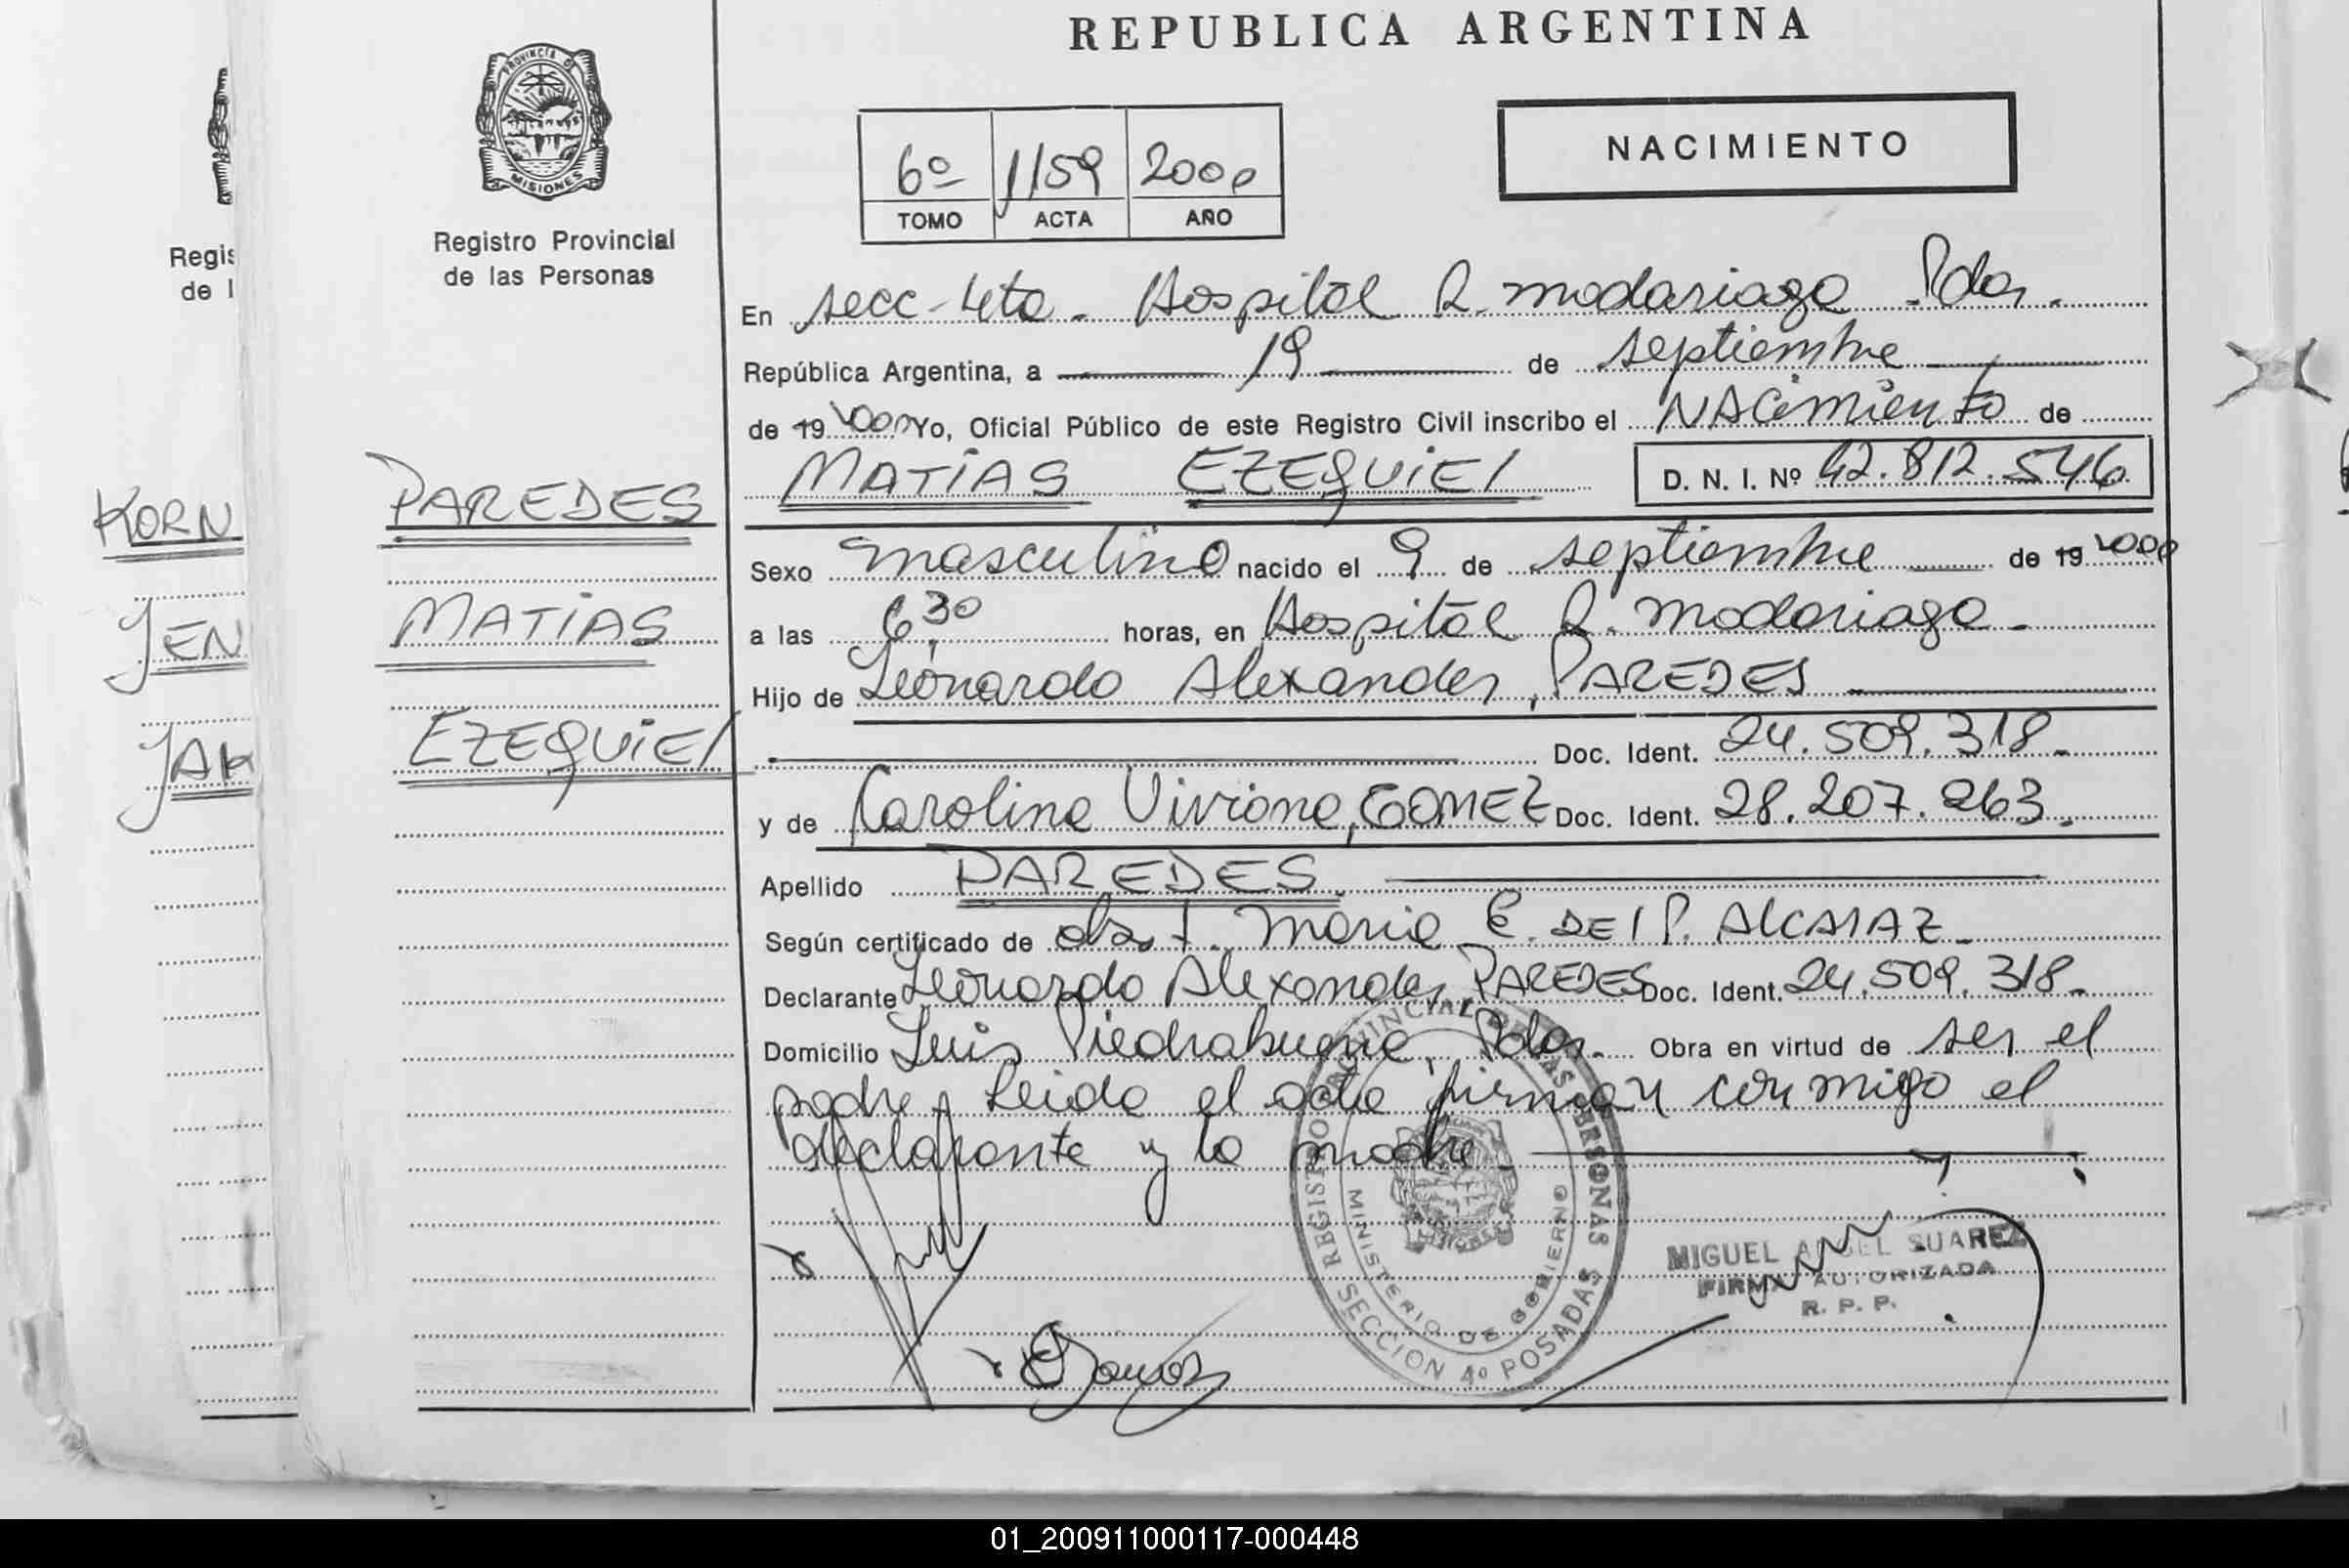 REPUBLICA ARGENTINA
PROVINCIA D
MISIONES
Registro Provincial
de las Personas
Regis
de l
NACIMIENTO
6º 1159 2000
TOMO ACTA AÑO
En secc-4ta. Hospital R. Madariaga Pdas.
República Argentina, a 19 de septiembre
de 19 2000 Yo, Oficial Público de este Registro Civil inscribo el NACimiento de
MATIAS EZEQUIEL D. N. I. Nº 42.812.546
KORN
PAREDES
Sexo masculino nacido el 9 de septiembre de 19 2000
JEN
MATIAS
a las 6,30 horas, en Hospital R. Madariaga.
Hijo de Leonardo Alexander, PAREDES
JAK
EZEQUIEL
Doc. Ident. 24.509.318.
y de Carolina Viviana, GOMEZ Doc. Ident. 28.207.263.
Apellido PAREDES
Según certificado de obst. Maria E. DEL P. ALCARAZ
Declarante Leonardo Alexander PAREDES Doc. Ident. 24.509.318.
Domicilio Luis Piedrabuena, Pdas. Obra en virtud de ser el
padre, Leida el acta firman conmigo el
declarante y la madre
REGISTRO PROVINCIAL DE LAS PERSONAS
MINISTERIO DE GOBIERNO
SECCION 4º POSADAS
MIGUEL ANGEL SUAREZ
FIRMA AUTORIZADA
R. P. P.
01_200911000117-000448